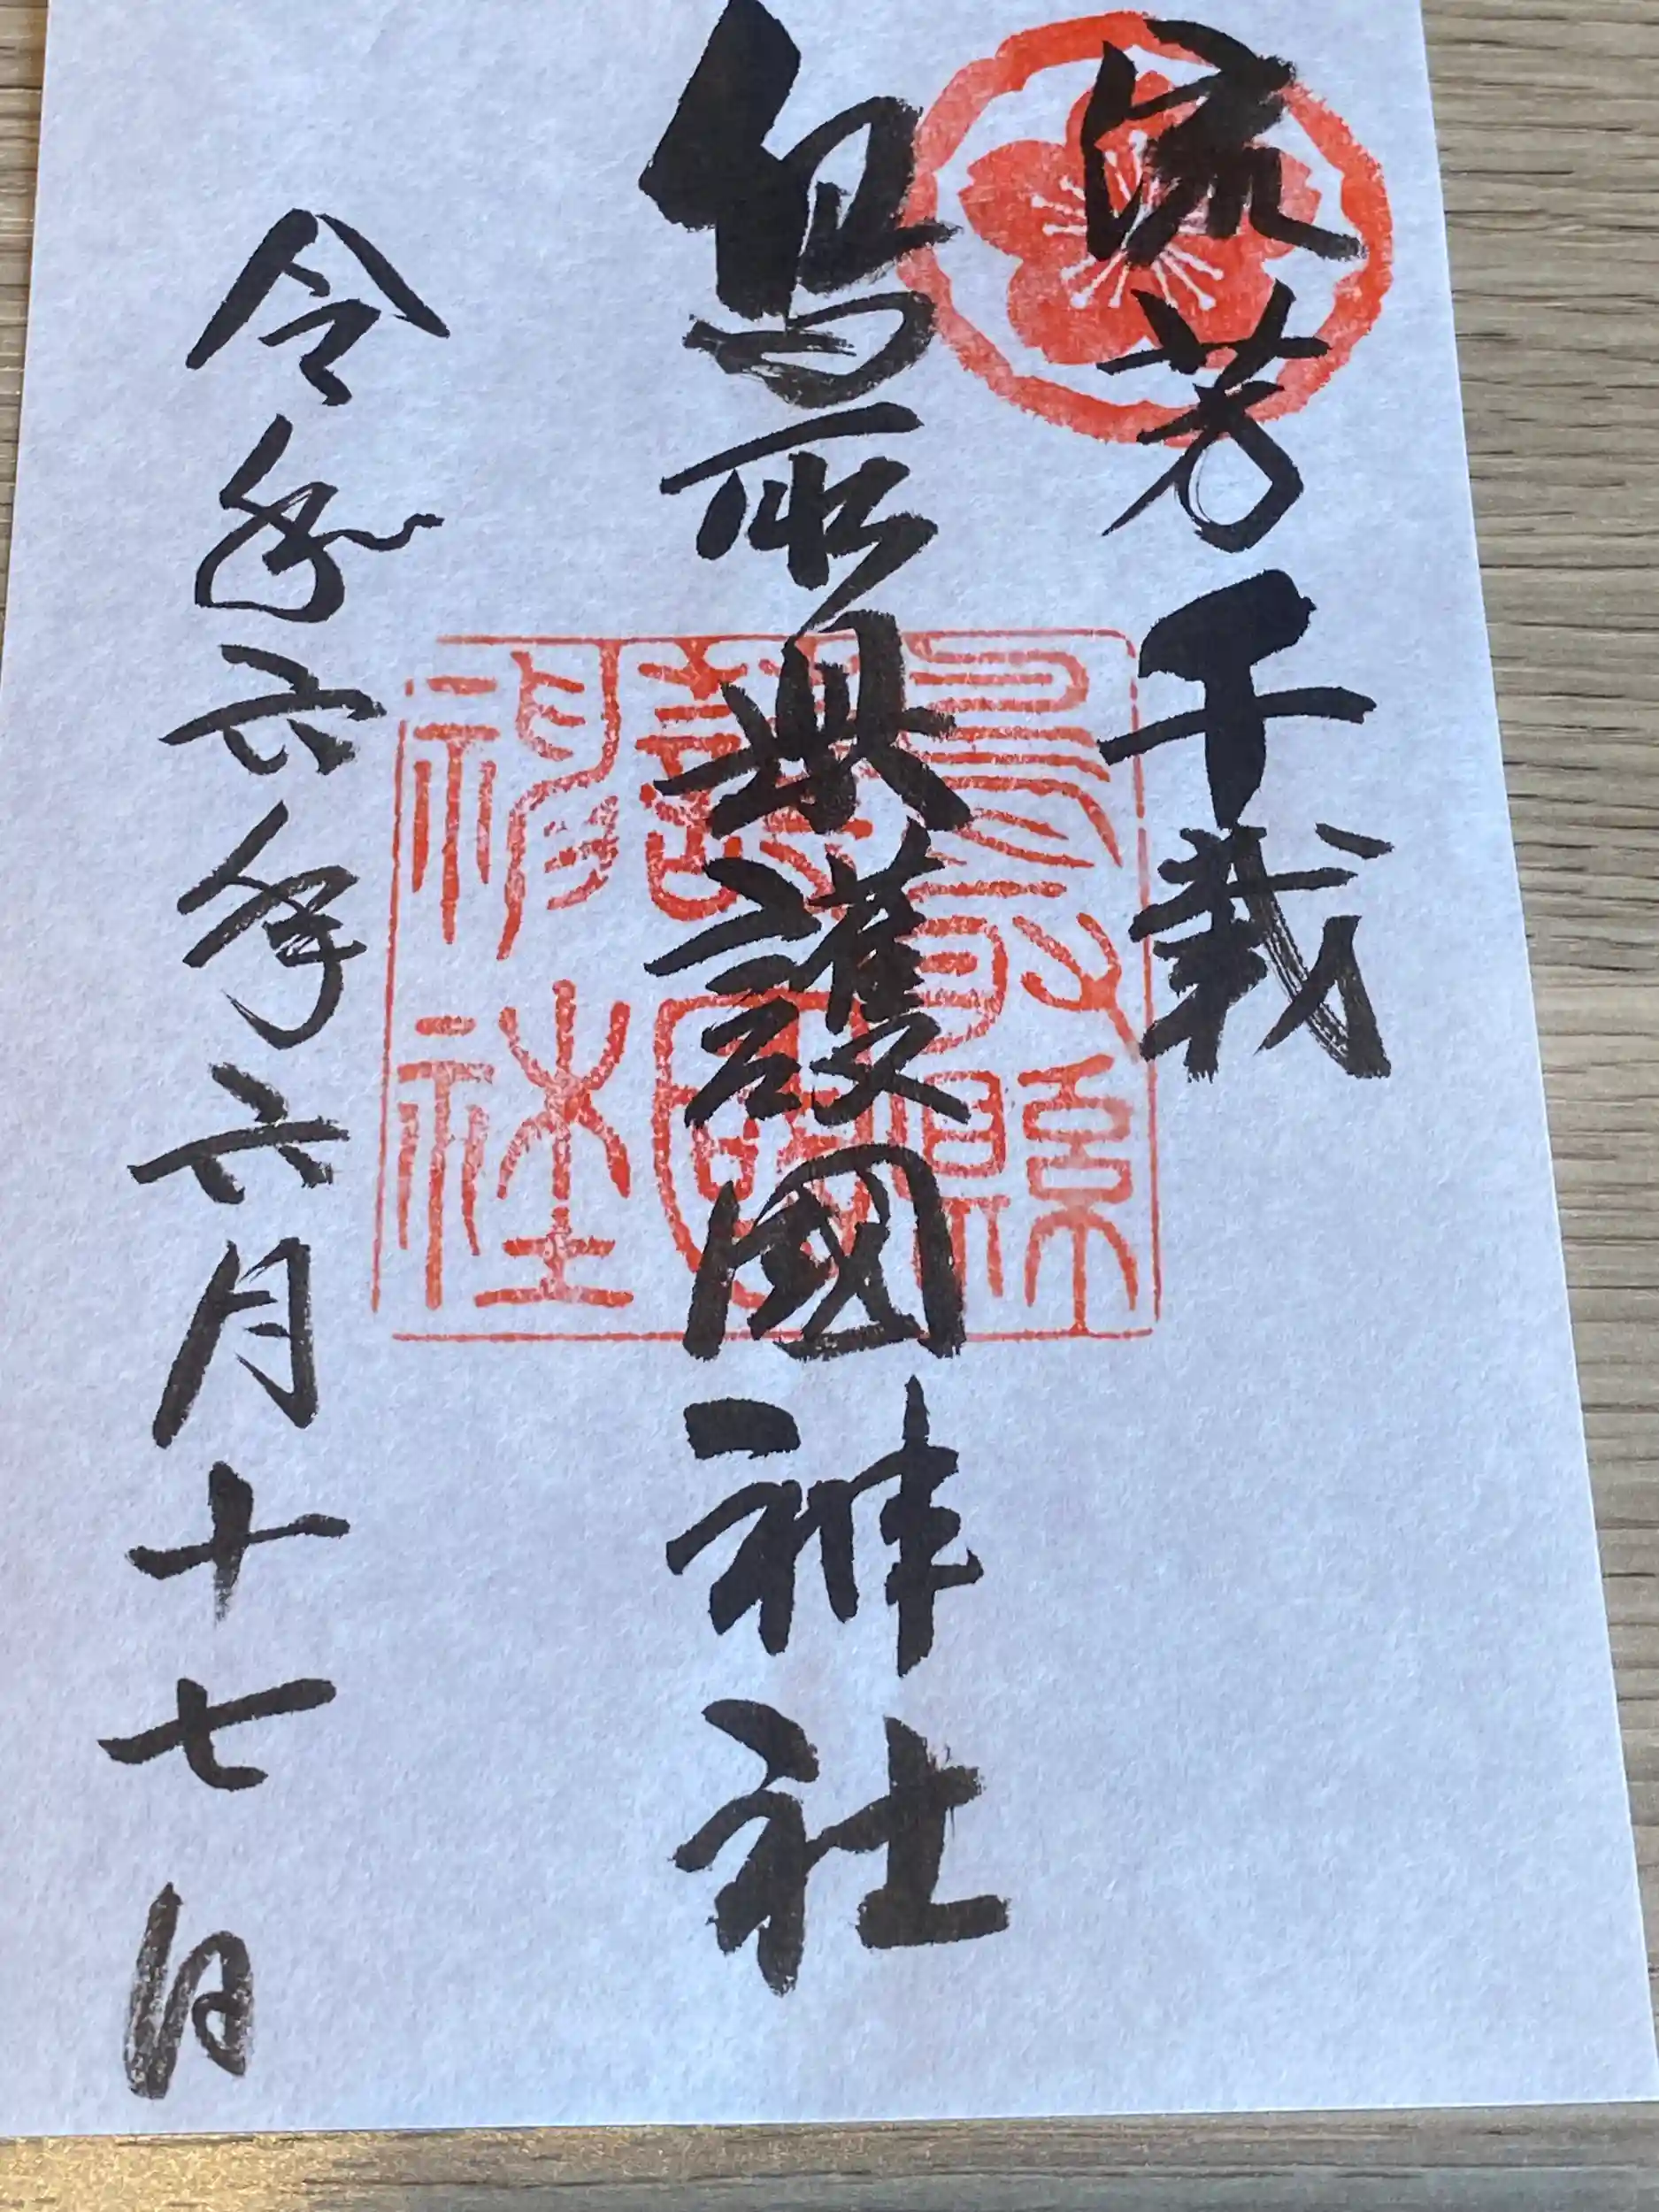 流芳千載
鳥取県護國神社
令和六年六月十七日
鳥取縣護國神社